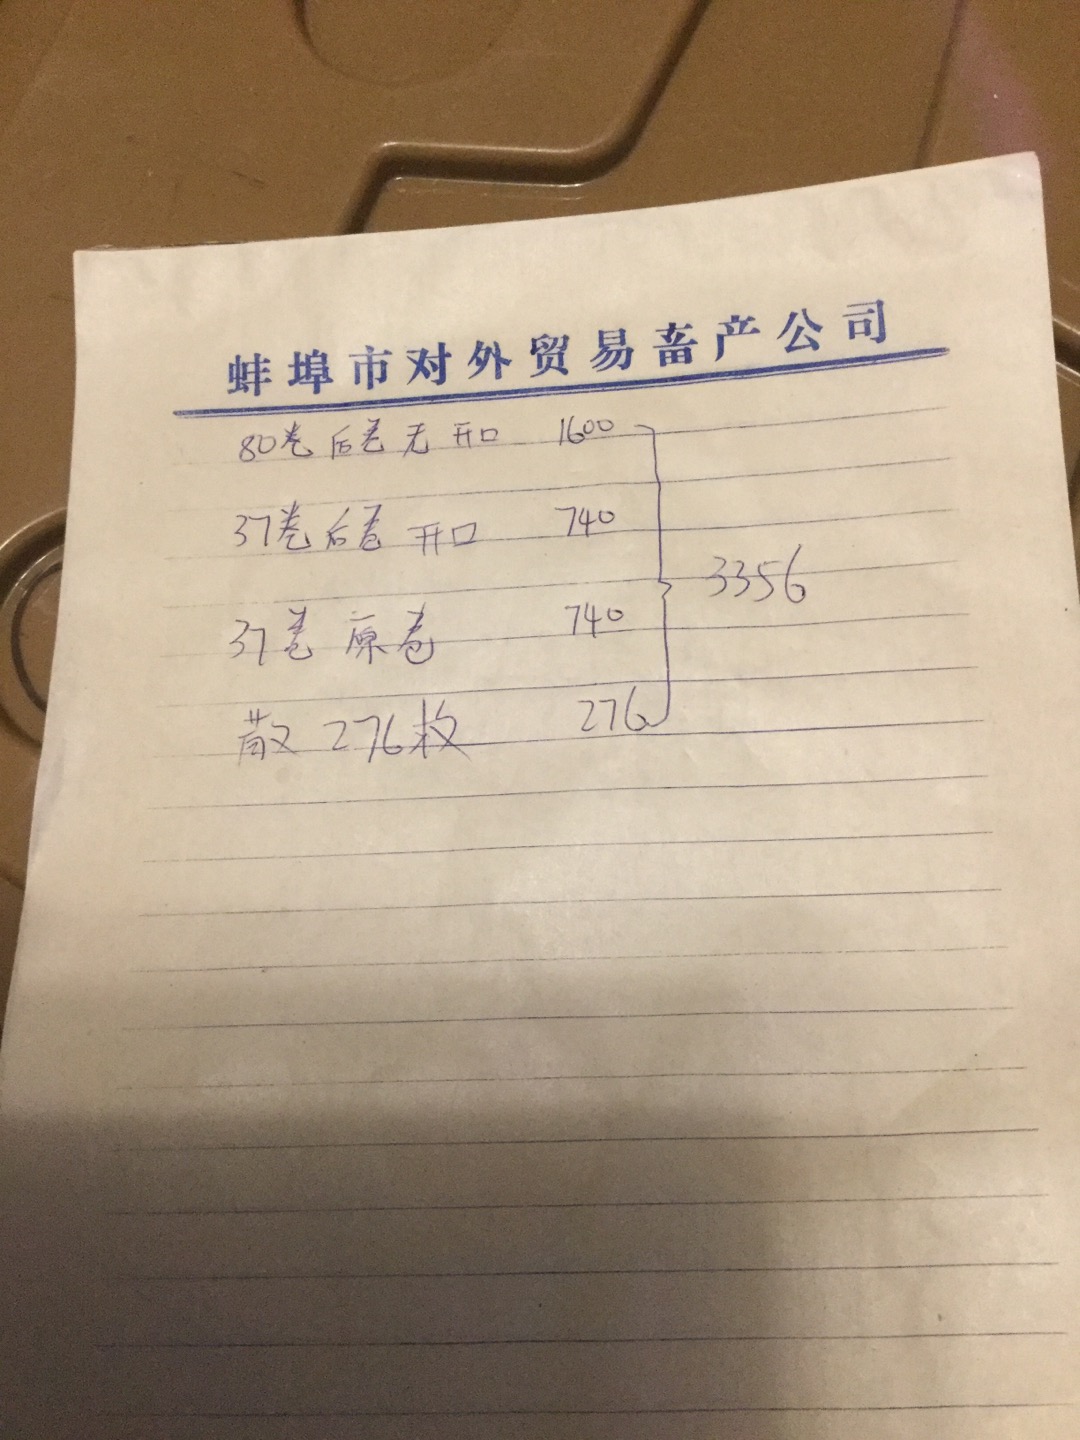 蚌埠市对外贸易畜产公司
80卷后卷无开口 1600
37卷后卷开口 740
3356
37卷原卷 740
散276枚 276